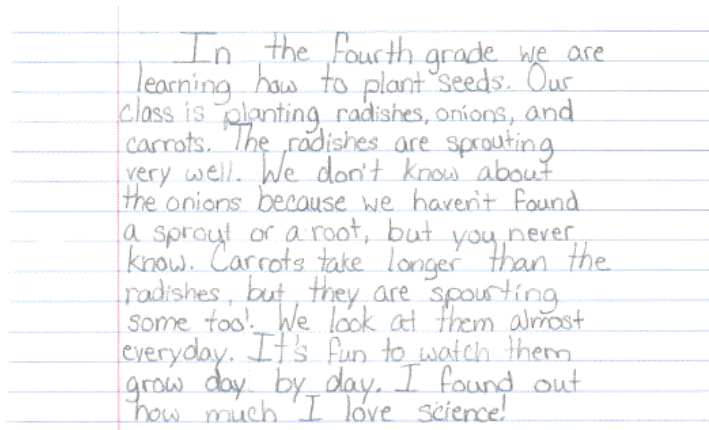 In the fourth grade we are
learning how to plant seeds. Our
class is planting radishes, onions, and
carrots. The radishes are sprouting
very well. We don't know about
the onions because we haven't found
a sprout or a root, but you never
know. Carrots take longer than the
radishes, but they are spourting
some too! We look at them almost
everyday. It's fun to watch them
grow day by day. I found out
how much I love science!